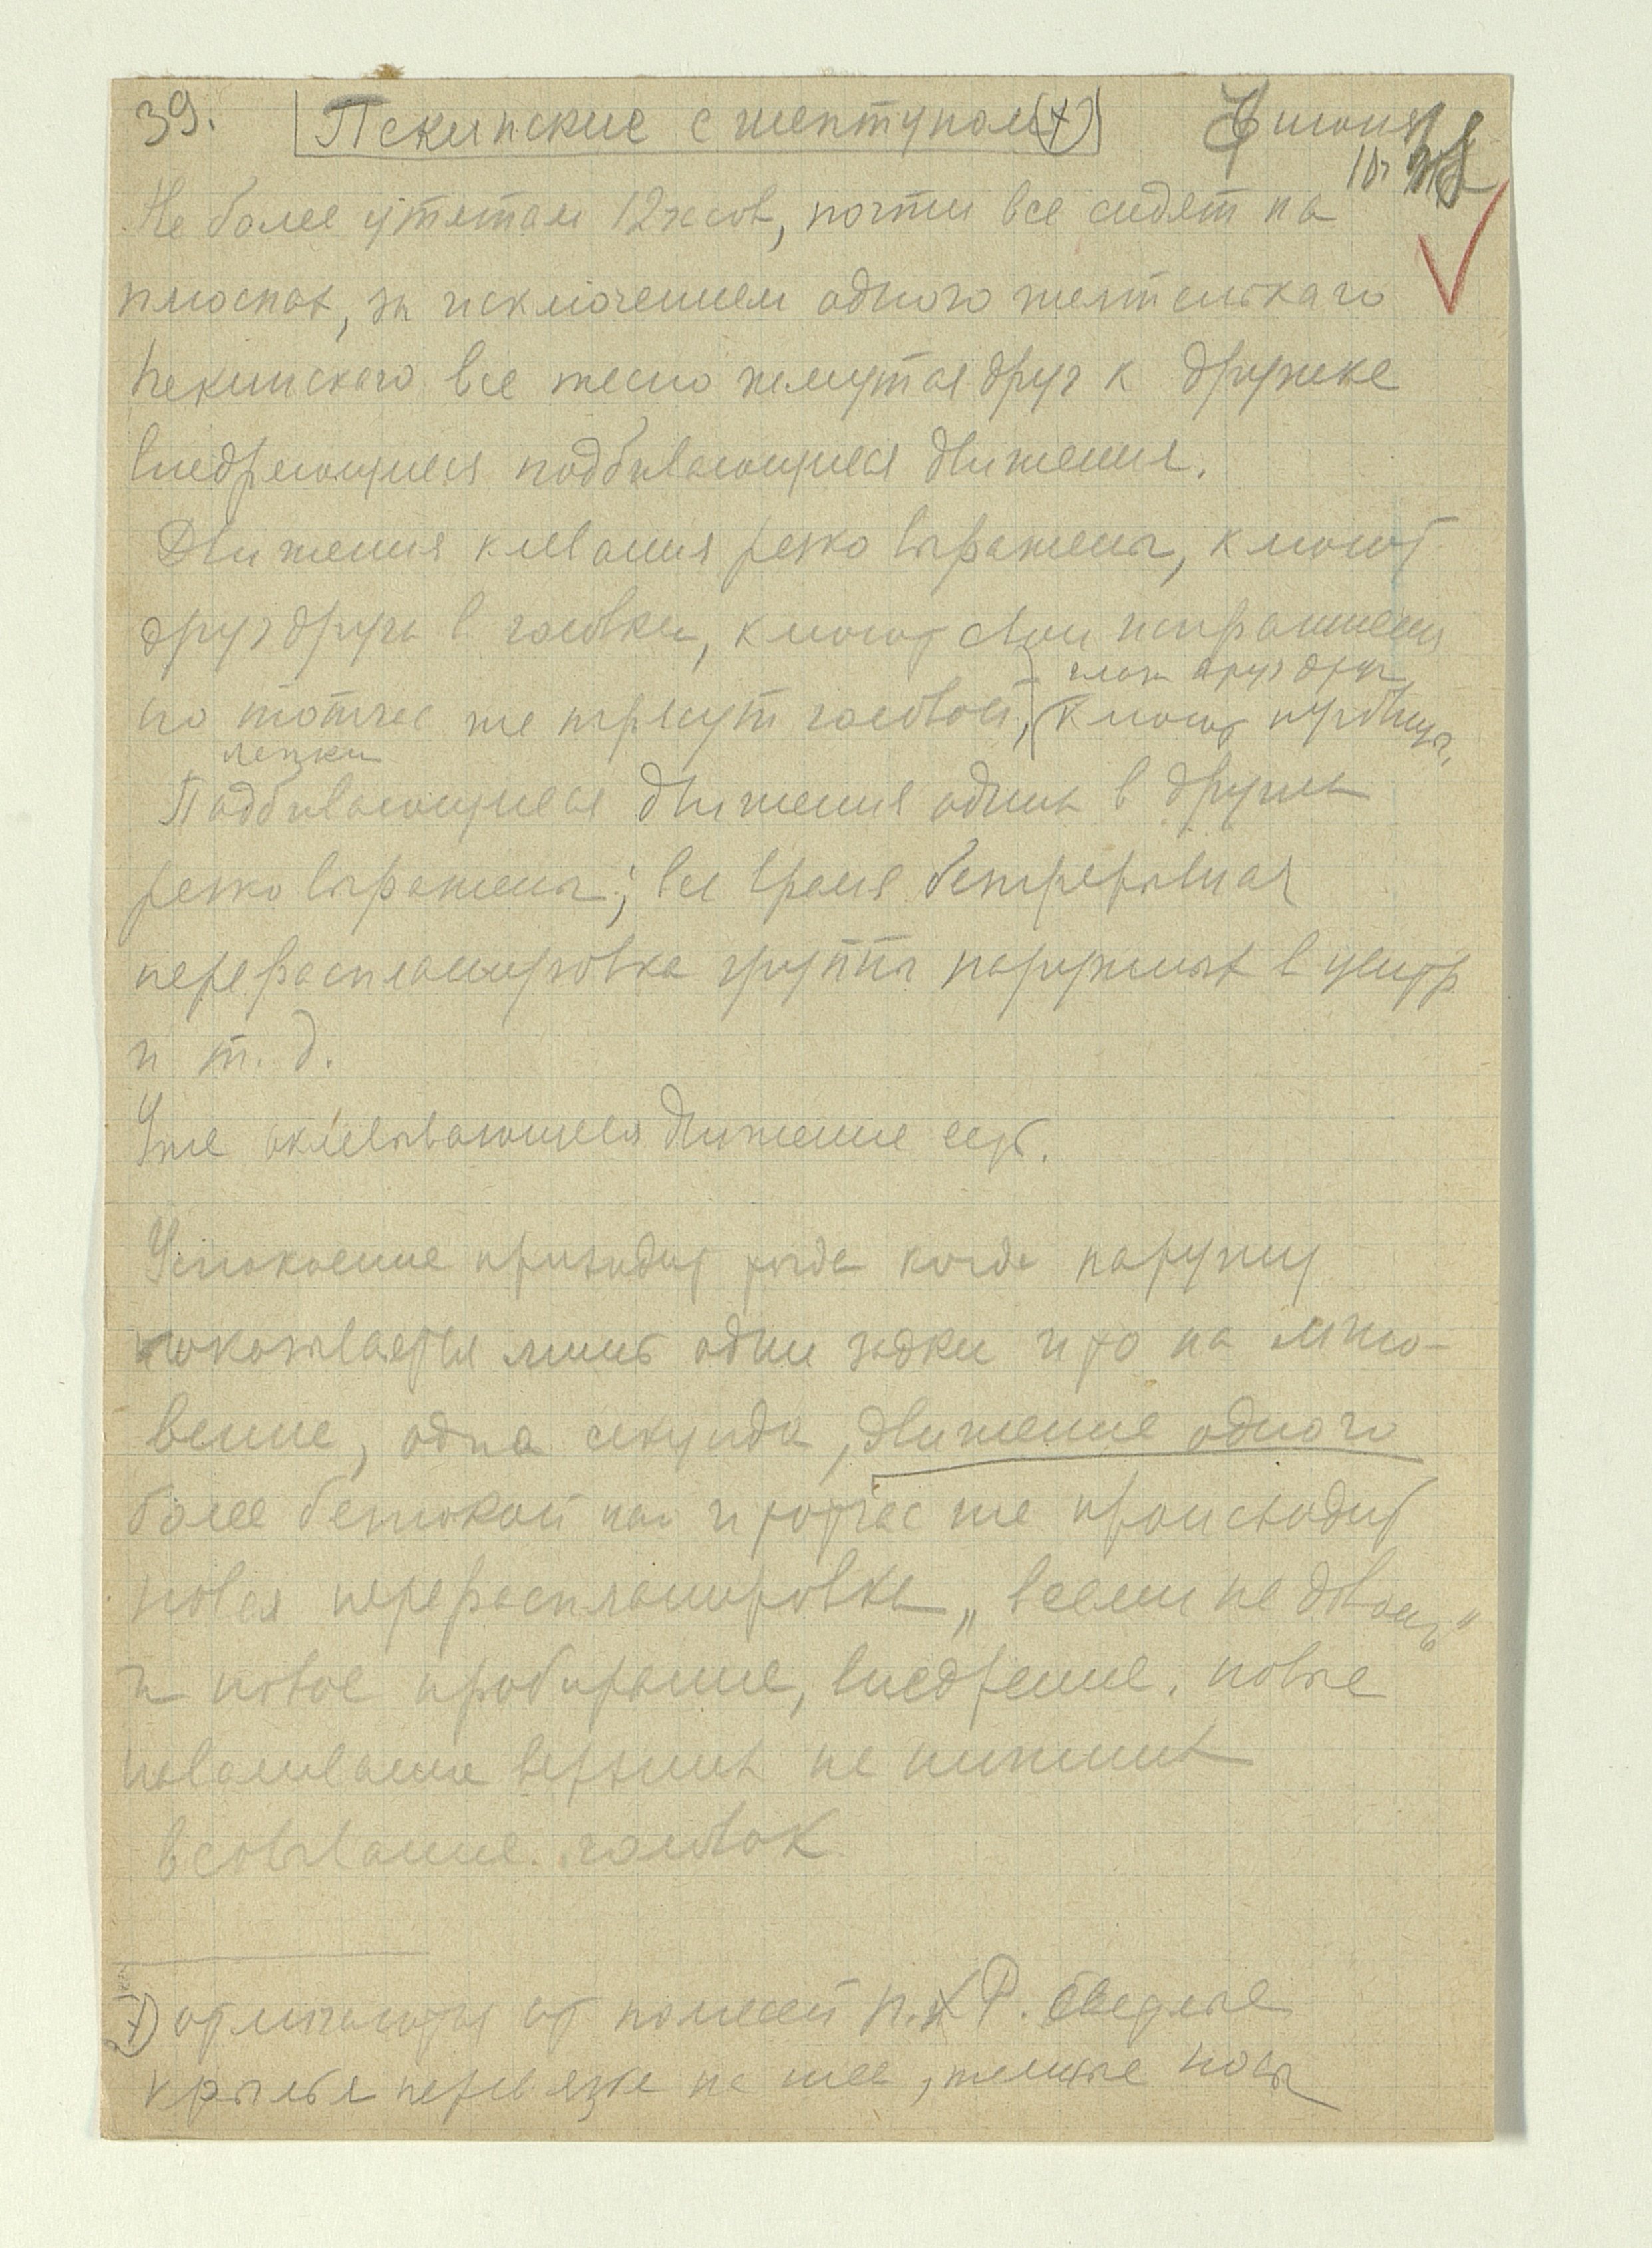 39. Пекинские с шептунами (+) июня
Не более утятам 12 часов, почти все сидят на
плюснах, за исключением одного желтенькаго
пекинскаго все тесно жмутся друг к дружке
внедряющиеся подбивающиеся движения.
Движения клевания резко выражены, клюют
друг друга в головки, клюют свои испражнения
глаза друг друга
но тотчас же трясут головой, клюют
лапки
Подбивающиеся движения одних в других
резко выражены; все время беспрерывная
перераспланировка группы наружных в центр
и т. д.
Уже оклевывающиеся движение есть.
Успокоение приходит тогда когда наружу
показывается лишь одни задки и то на мгно-
вение, одна секунда, движение одного
более беспокой и тотчас же происходит
новая перераспланировка „
и новое пробирание, внедрение, новые
наваливание верхних на нижних
всовывание головок
+) отличаются от помесей п. х Р. светлые
крылья перевязка на шее, темные носы